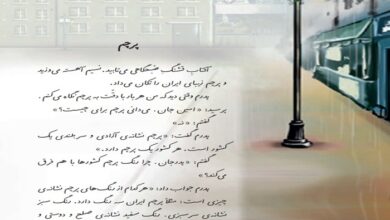 پرچم
آفتاب قشنگ صبحگاهی می‌تابید. نسیم آهسته می‌وزید
و پرچم زیبای ایران را تکان می‌داد.
پدرم وقتی دید که من هر بار با دقّت به پرچم نگاه می‌کنم.
پرسید: «امین جان، می‌دانی پرچم برای چیست؟»
گفتم: «نه»
پدرم گفت: «پرچم نشانه‌ی آزادی و سربلندی یک
کشور است. هر کشور یک پرچم دارد.»
گفتم: «پدرجان، چرا رنگ پرچم کشورها با هم فرق
می‌کند؟»
پدرم جواب داد: «هر کدام از رنگ‌های پرچم نشانه‌ی
چیزی است؛ مثلاً پرچم ایران سه رنگ دارد. رنگ سبز
نشانه‌ی سرسبزی، رنگ سفید نشانه‌ی صلح و دوستی و